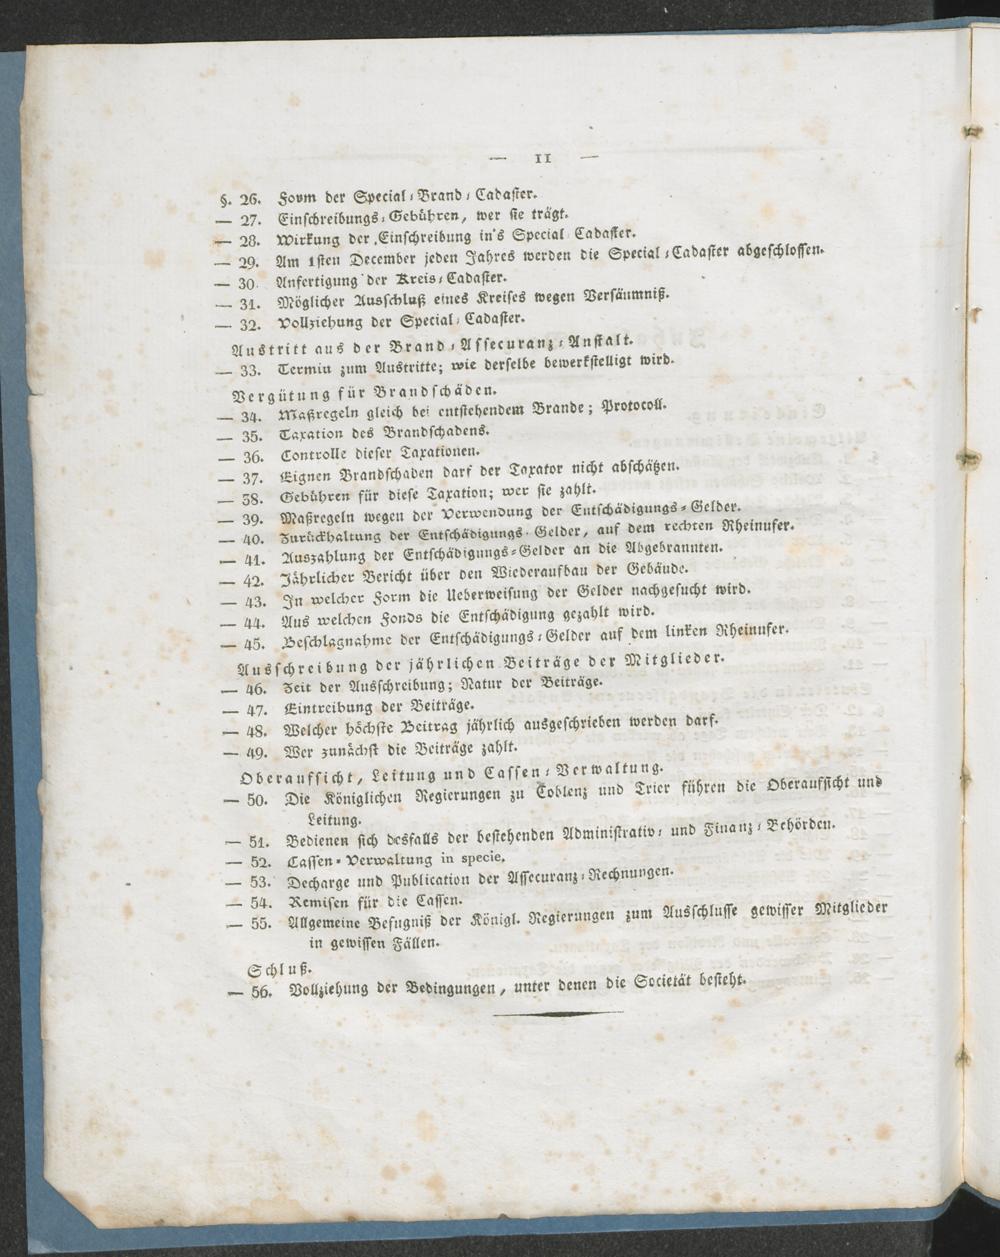 — 11 —
§. 26. Form der Special-Brand-Cadaster.
— 27. Einschreibungs-Gebühren, wer sie trägt.
— 28. Wirkung der Einschreibung in's Special Cadaster.
— 29. Am 1sten December jeden Jahres werden die Special-Cadaster abgeschlossen.
— 30. Anfertigung der Kreis-Cadaster.
— 31. Möglicher Ausschluß eines Kreises wegen Versäumniß.
— 32. Vollziehung der Special-Cadaster.
Austritt aus der Brand-Assecuranz-Anstalt.
— 33. Termin zum Austritte; wie derselbe bewerkstelligt wird.
Vergütung für Brandschäden.
— 34. Maßregeln gleich bei entstehendem Brande; Protocoll.
— 35. Taxation des Brandschadens.
— 36. Controlle dieser Taxationen.
— 37. Eignen Brandschaden darf der Taxator nicht abschätzen.
— 38. Gebühren für diese Taxation; wer sie zahlt.
— 39. Maßregeln wegen der Verwendung der Entschädigungs-Gelder.
— 40. Zurückhaltung der Entschädigungs-Gelder, auf dem rechten Rheinufer.
— 41. Auszahlung der Entschädigungs-Gelder an die Abgebrannten.
— 42. Jährlicher Bericht über den Wiederaufbau der Gebäude.
— 43. In welcher Form die Ueberweisung der Gelder nachgesucht wird.
— 44. Aus welchen Fonds die Entschädigung gezahlt wird.
— 45. Beschlagnahme der Entschädigungs-Gelder auf dem linken Rheinufer.
Ausschreibung der jährlichen Beiträge der Mitglieder.
— 46. Zeit der Ausschreibung; Natur der Beiträge.
— 47. Eintreibung der Beiträge.
— 48. Welcher höchste Beitrag jährlich ausgeschrieben werden darf.
— 49. Wer zunächst die Beiträge zahlt.
Oberaufsicht, Leitung und Cassen-Verwaltung.
— 50. Die Königlichen Regierungen zu Coblenz und Trier führen die Oberaufsicht und
Leitung.
— 51. Bedienen sich desfalls der bestehenden Administrativ- und Finanz-Behörden.
— 52. Cassen-Verwaltung in specie.
— 53. Decharge und Publication der Assecuranz-Rechnungen.
— 54. Remisen für die Cassen.
— 55. Allgemeine Befugniß der Königl. Regierungen zum Ausschlusse gewisser Mitglieder
in gewissen Fällen.
Schluß.
— 56. Vollziehung der Bedingungen, unter denen die Societät besteht.